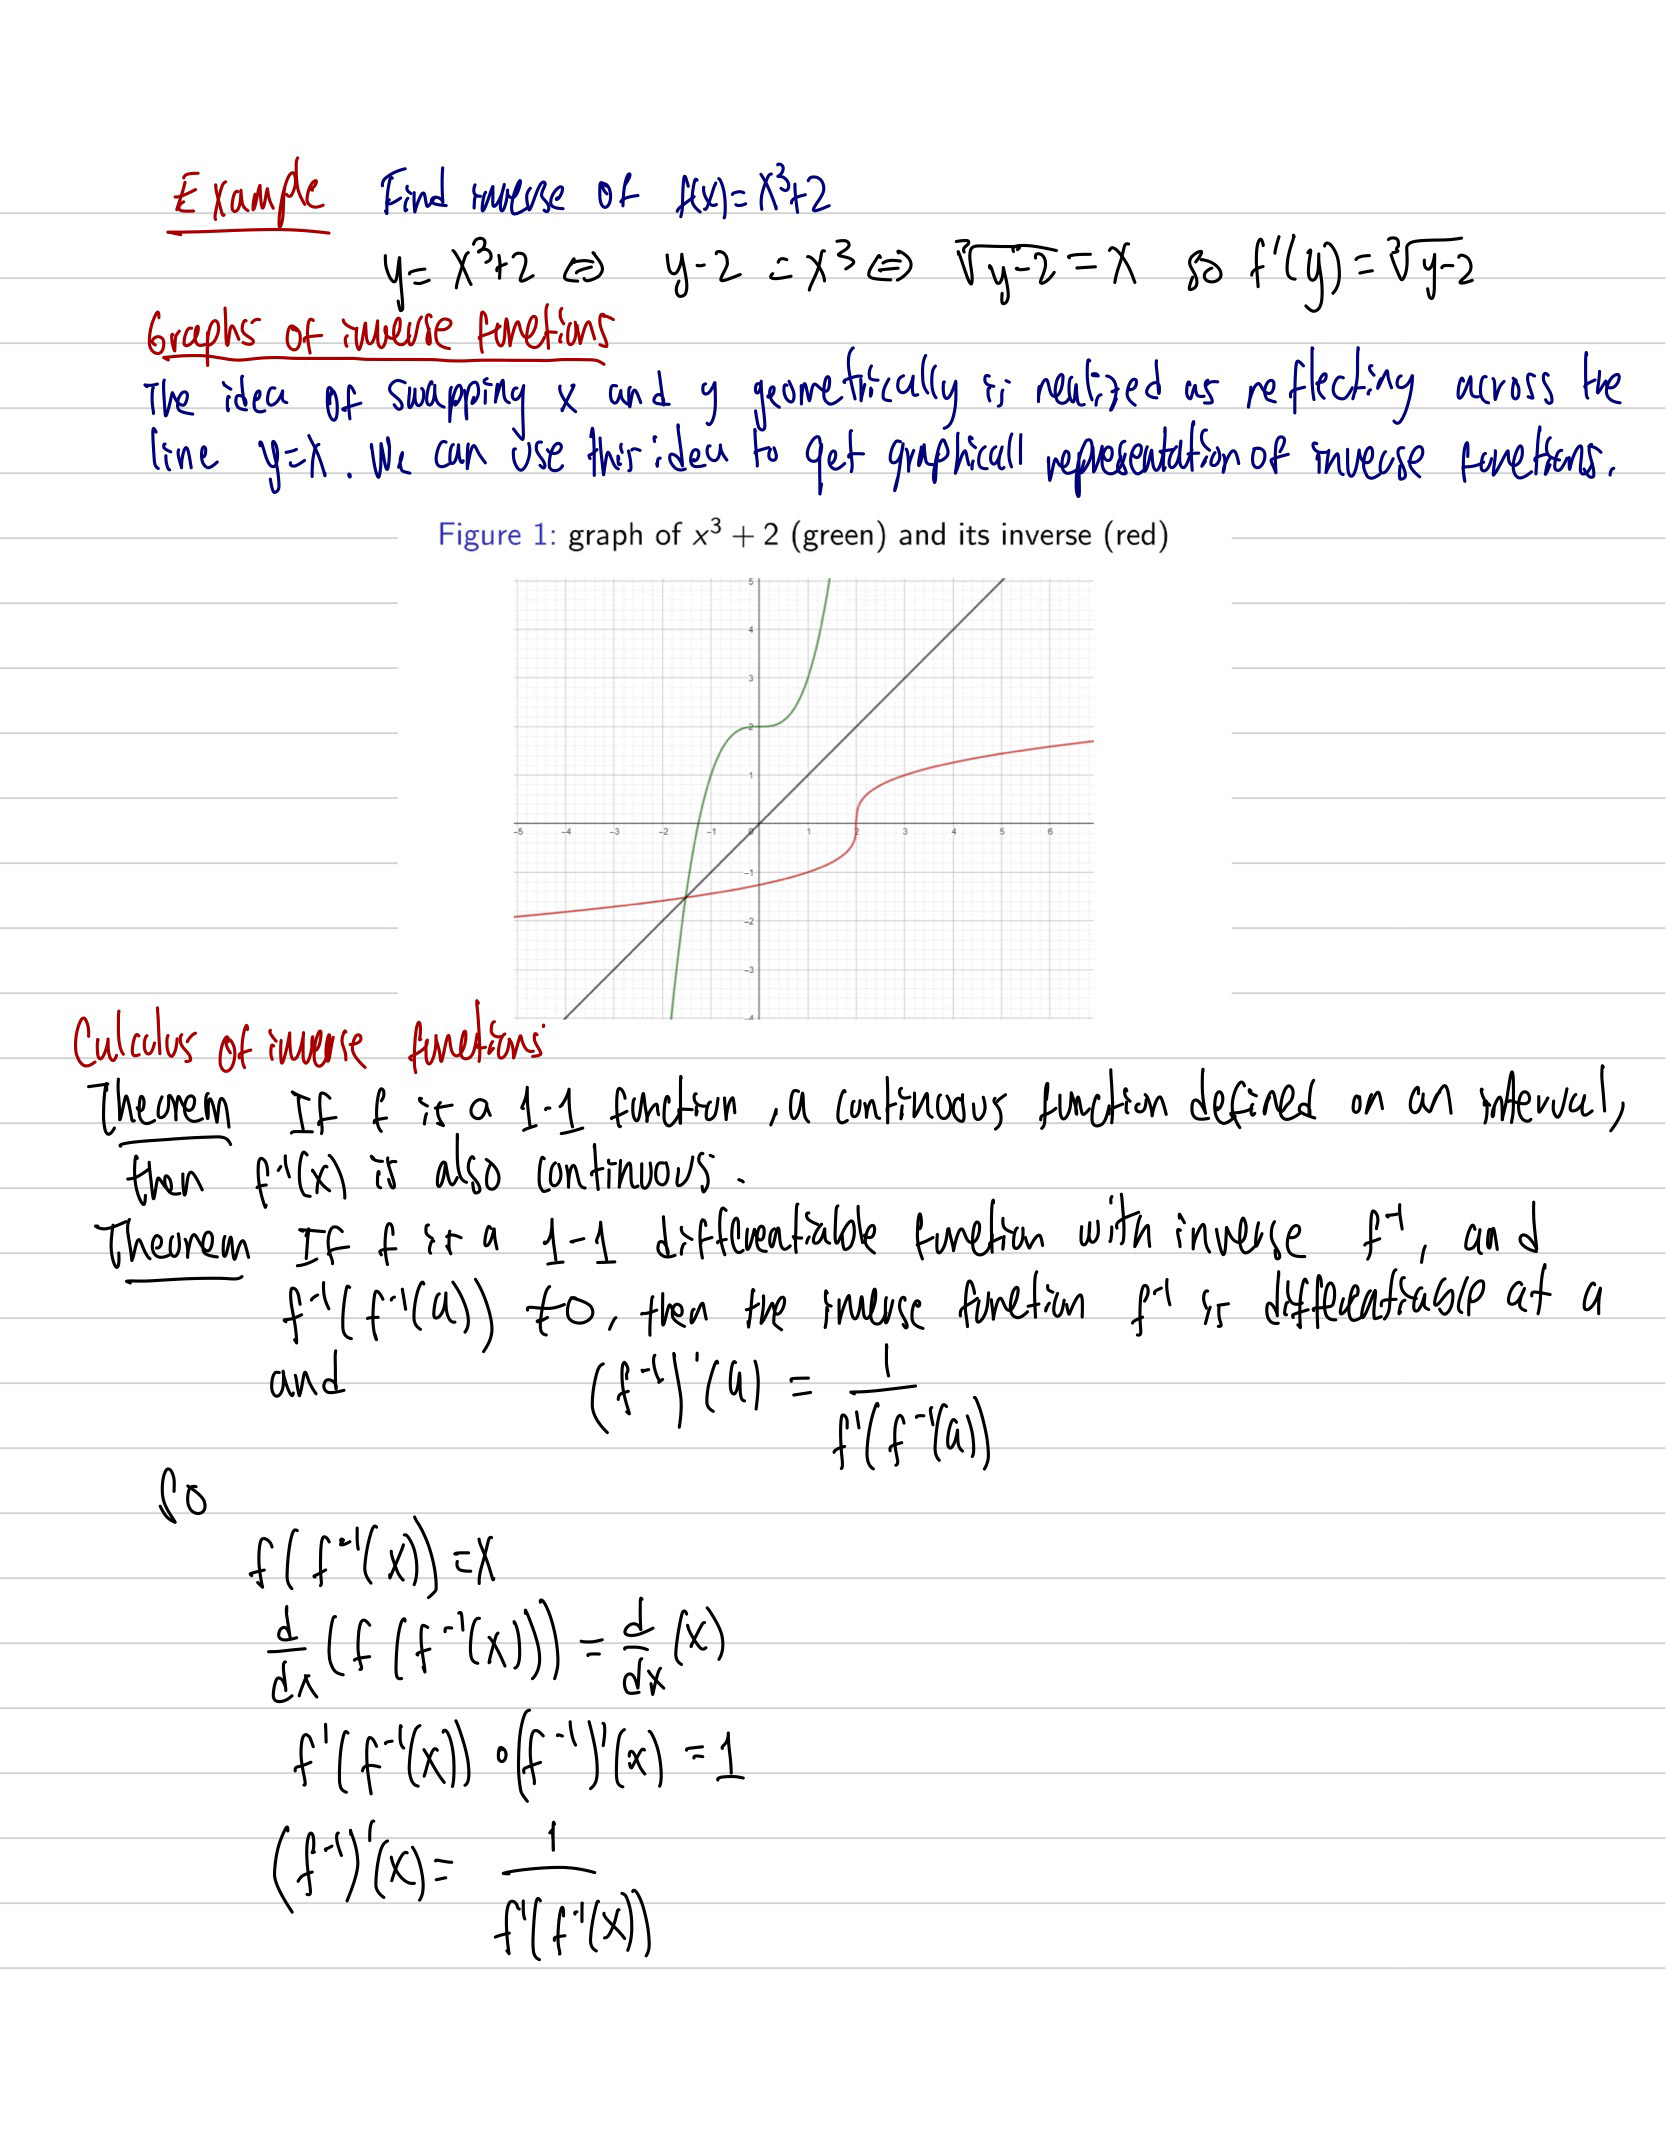 Example Find inverse of f(x)=x³+2
y=x³+2 ⇔ y-2 = x³ ⇔ ∛(y-2) = x so f⁻¹(y) = ∛(y-2)
Graphs of inverse functions
The idea of swapping x and y geometrically is realized as reflecting across the
line y=x. We can use this idea to get graphicall representation of inverse functions.
Figure 1: graph of x³ + 2 (green) and its inverse (red)
5
4
3
2
1
-5 -4 -3 -2 -1 0 1 2 3 4 5 6
-1
-2
-3
-4
Calculus of inverse functions
Theorem If f is a 1-1 function, a continuous function defined on an interval,
then f⁻¹(x) is also continuous.
Theorem If f is a 1-1 differentiable function with inverse f⁻¹, and
f⁻¹(f⁻¹(a)) ≠0, then the inverse function f⁻¹ is differentiable at a
and (f⁻¹)'(a) = 1/f'(f⁻¹(a))
So
f(f⁻¹(x))=x
d/dx (f(f⁻¹(x))) = d/dx (x)
f'(f⁻¹(x)) ∘ (f⁻¹)'(x) = 1
(f⁻¹)'(x) = 1/f'(f⁻¹(x))